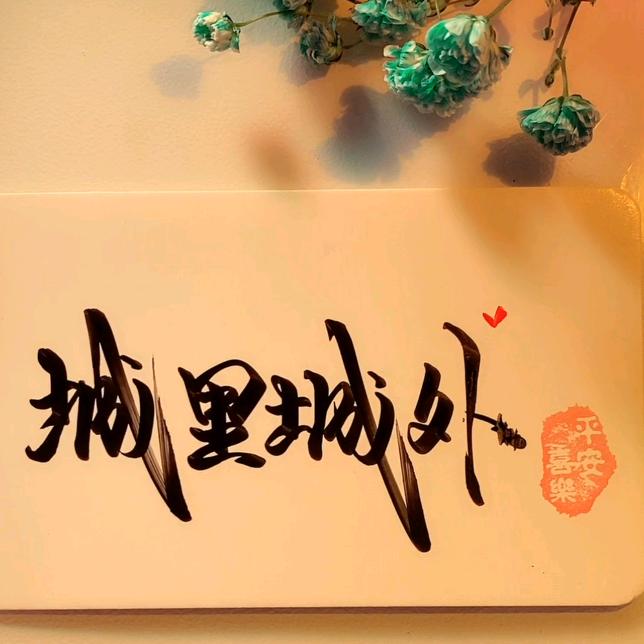 城里城外
平安
喜樂